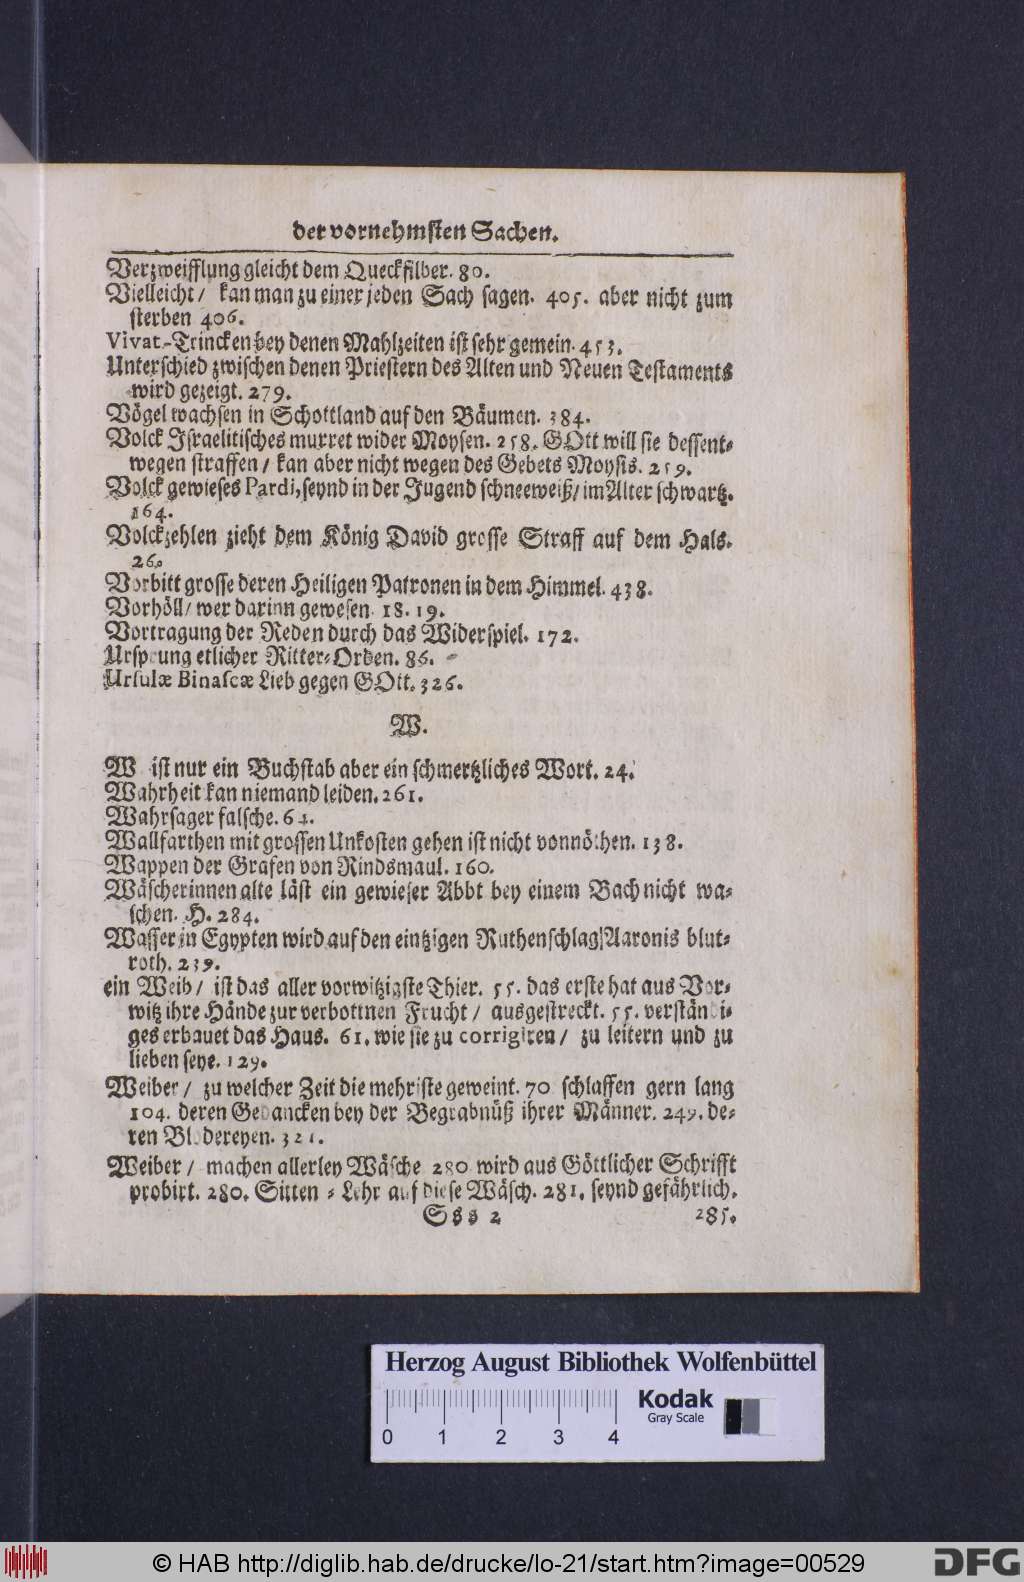 der vornehmsten Sachen.
Verzweifflung gleicht dem Queckſilber. 80.
Vielleicht / kan man zu einer jeden Sach ſagen. 405. aber nicht zum
ſterben 406.
Vivat-Trincken bey denen Mahlzeiten iſt ſehr gemein. 453.
Unterſchied zwiſchen denen Prieſtern des Alten und Neuen Teſtaments
wird gezeigt. 279.
Vögel wachſen in Schottland auf den Bäumen. 384.
Volck Iſraelitiſches murret wider Moyſen. 258. GOtt will ſie deſſent-
wegen ſtraffen / kan aber nicht wegen des Gebets Moyſis. 259.
Volck gewieſes Pardi, ſeynd in der Jugend ſchneeweiß / im Alter ſchwartz.
164.
Volckzehlen zieht dem König David groſſe Straff auf dem Hals.
26.
Vorbitt groſſe deren Heiligen Patronen in dem Himmel. 438.
Vorhöll / wer darinn geweſen. 18. 19.
Vortragung der Reden durch das Widerſpiel. 172.
Urſprung etlicher Ritter-Orden. 86.
Urſulæ Binaſcæ Lieb gegen GOtt. 326.
W.
W iſt nur ein Buchſtab aber ein ſchmertzliches Wort. 24.
Wahrheit kan niemand leiden. 261.
Wahrſager falſche.
Wallfarthen mit groſſen Unkoſten gehen iſt nicht vonnöthen. 138.
Wappen der Grafen von Rindsmaul. 160.
Wäſcherinnen alte läſt ein gewieſer Abbt bey einem Bach nicht wa-
ſchen. H. 284.
Waſſer in Egypten wird auf den eintzigen Ruthenſchlag Aaronis blut-
roth. 239.
ein Weib / iſt das aller vorwitzigſte Thier. 55. das erſte hat aus Vor-
witz ihre Hände zur verbottnen Frucht / ausgeſtreckt. 55. verſtändi-
ges erbauet das Haus. 61. wie ſie zu corrigiren / zu leitern und zu
lieben ſeye. 129.
Weiber / zu welcher Zeit die mehriſte geweint. 70 ſchlaffen gern lang
104. deren Gedancken bey der Begrabnüß ihrer Männer. 249. de-
ren Blodereyen. 321.
Weiber / machen allerley Wäſche 280 wird aus Göttlicher Schrifft
probirt. 280. Sitten-Lehr auf dieſe Wäſch. 281. ſeynd gefährlich.
Sss 2 285.
Herzog August Bibliothek Wolfenbüttel
Kodak
Gray Scale
0 1 2 3 4
© HAB http://diglib.hab.de/drucke/lo-21/start.htm?image=00529
DFG